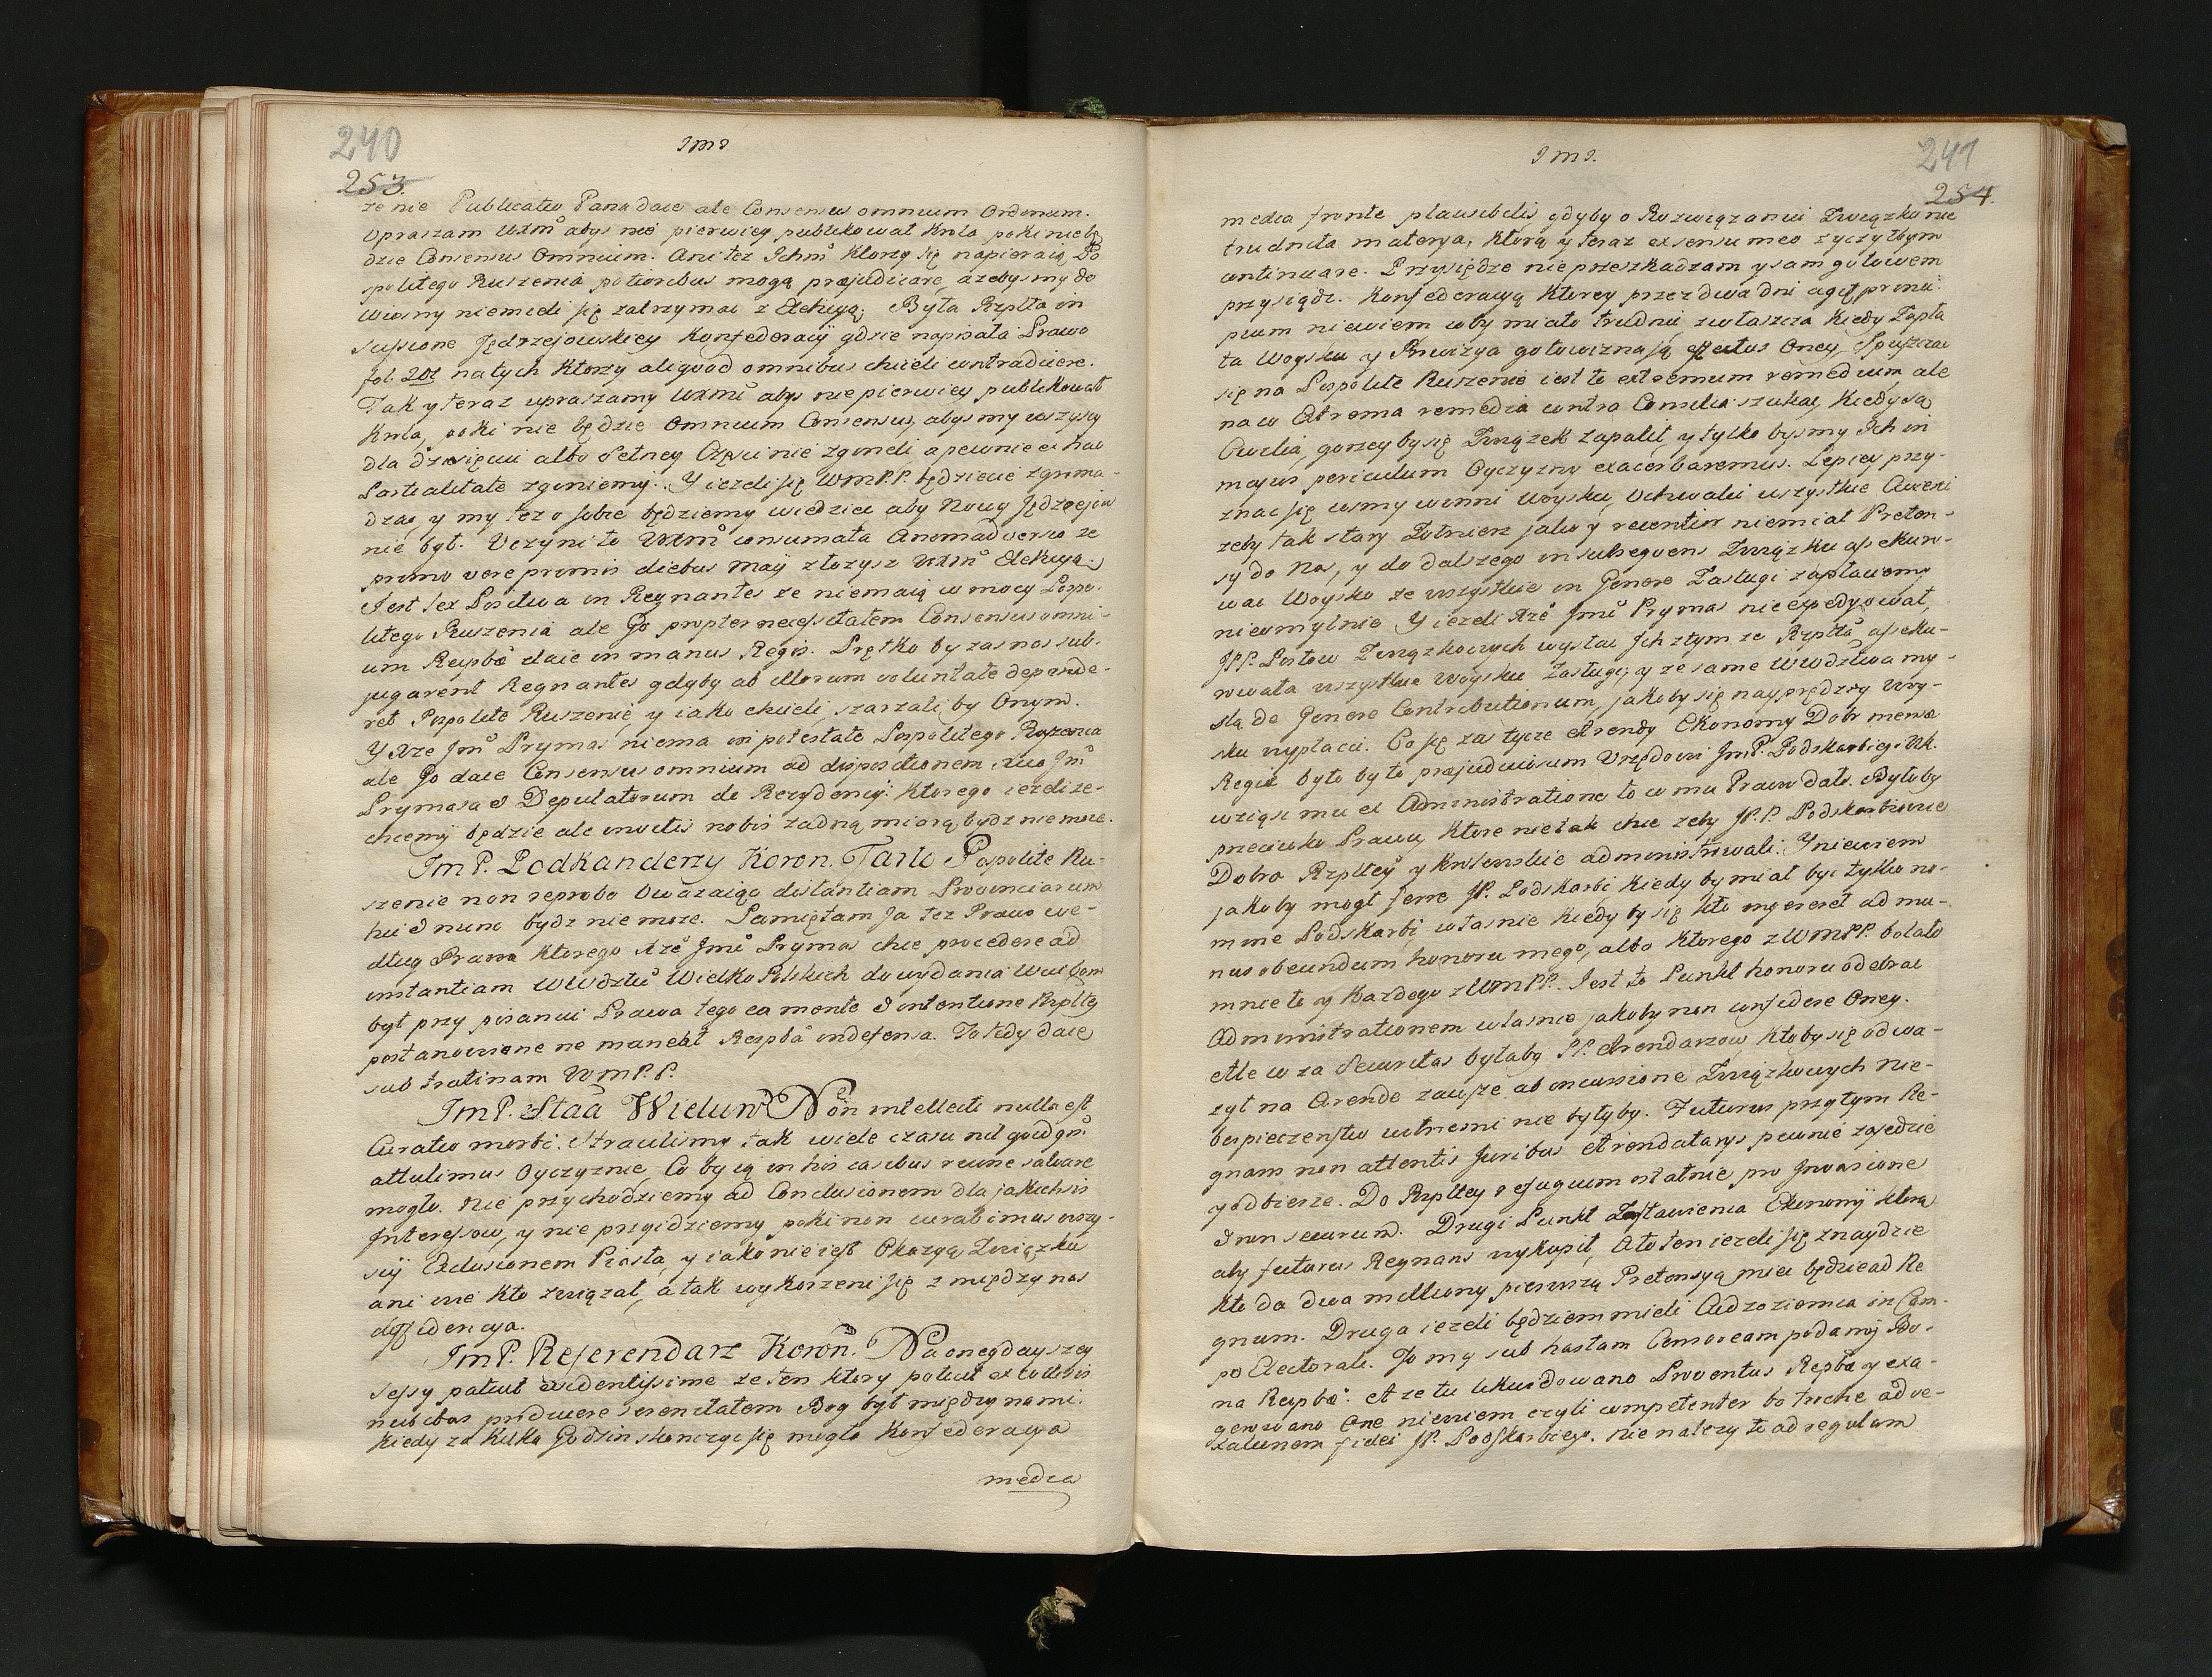 240
Jmś
253.
że nie Publicatio Pana daie ale Consensus omnium Ordinum.
Upraszam WXm̃ abyś nie pierwiey publikował Krola poki nie bę
dzie Consensus Omnium. Ani też Ichm̃ Ktorzy się napieraią Po
spolitego Ruszenia potioribus mogą præjudicare, azebysmy do
Wiosny niemieli się zatrzymac z Elekcyą. Była Rzplta in
scissione Jędrzejowskiey Konfederacij gdzie napisała Prawo
fol. 201 na tych Ktorzy aliquod omnibus chcieli contradicere.
Tak y teraz upraszamy WXm̃ abys nie pierwiey publikował
Krola, poki nie będzie Omnium Consensus, abysmy wszyscy
dla dziesięci albo setney Częsci nie zgineli a pewnie ex hac
Partialitate zginiemy. Y iezeli się WmP.P. będziecie zgroma-
dzac, y my też o sobie będziemy wiedziec aby Nowy Jędrzejow
nie był. Uczyni to WXm̃ consumata Animadversio ze
primo vere primis diebus Maij złozysz WXm̃ Elekcyą.
Jest też Positiva in Regnantes ze niemaią w mocy Pospo-
litego Ruszenia ale Go propter necessitatem Consensus omni-
um Reipbæ daie in manus Regis. Prętko by zas nas sub-
jugarent Regnantes gdyby ab illorum voluntate depende-
ret Pospolite Ruszenie, y iako chcieli, szarzali by Onym.
Y Xze Jm̃ Prymas niema in potestate Pospolitego Ruszenia
ale Go daie Consensus omnium ad dispositionem Xcia Jm̃
Prymasa & Deputatorum do Rezydencij: ktorego iezeli ze-
chcemy będzie ale invitis nobis zadną miarą bydz niemoze.
JmP. Podkanclerzy Koron. Tarło Pospolite Ru-
szenie non reprobo Uwazaiąc distantiam Provinciarum
hic & nunc bydz nie moze. Pamiętam Ja tez Prawo we-
dług Prawa ktorego Xze Jm̃ Prymas chce procedere ad
instantiam WWdztw Wielko Polskich do wydania Wici Jam
był przy pisaniu Prawa tego ea mente & intentione Rzpltey
postanowione ne maneat Respba indefensa. To tedy daię
sub trutinam WmP.P.
JmP. Stta Wieluń Non intellecti nulla est
Curatio morbi. Stracilismy tak wiele czasu nil quid qm
attulimus Oyczyznie, Co by ią in his casibus recine salvare
mogło. Nie przychodziemy ad Conclusionem dla jakichsis
Interessow, y nie przyidziemy poki non curabimus wszy-
scy Exclusionem Piasta, y iako nie iest Okazyą Związku
ani wie kto związał, a tak wykorzeni się z między nas
diffidencya.
JmP. Referendarz Koron. Na onegdayszey
sessy patuit evidentissime ze ten ktory potuit ex
nubibus producere serenitatem Bog był między nami.
Kiedy za kilka Godzin skonczyc się mogła Konfederacya
media
241
Jmś.
254.
media fronte plausibilis gdyby o Rozwiązaniu Związku nie
trudniła materya, Ktorą y teraz ex sensu meo zyczyłbym
continuare. Przysiędze nie przeszkadzam y sam gotowem
przysiądz. Konfederacyą Ktorey przez dwa dni agit princi-
pium niewiem coby miało trudnic zwłaszcza Kiedy Zapła
ta Woysku y Prowizya gotowizną są effectus Oney. Spuszczac
się na Pospolite Ruszenie iest to extremum remedium, ale
na co Extrema remedia contra Consilia szukac, Kiedy są
Consilia, gorzey by się Związek zapalił, y tylko bysmy Ich in
majus periculum Oyczyzny exacerbaremus. Lepiey przy-
znac się cosmy winni Woysku, Uchwalic wszystkie Cwierci
zeby tak stary Zołnierz jako y recentior niemiał Preten-
sy do Nas, y do dalszego in subsequens Związku assekuro-
wac Woysko ze wszystkie in Genere Zasługi zapłacemy
nieomylnie. Y iezeli Xze Jm̃ Prymas nie expedyował,
JP.P. Posłow Związkowych wysłac Ich z tym ze Rzplta asseku-
rowała wszystkie Woysku Zasługi, y ze same WWdztwa my-
slą de Genere Contributionum, jakoby się nayprędzey Woy-
sku wypłacic. Co się zas tycze Arendy Ekonomy Dobr mensæ
Regiæ było by to præjudiciosum Urzędowi JmP. Podskarbiego Wk.
wziąsc mu ex Administratione to co mu Prawo dało. Byłoby
przeciwko Prawu, Ktore nie tak chce zeby JP.P. Podskarbiowie
Dobra Rzpltey y Krolewskie administrowali. Y niewiem
jakoby mogł ferre JP. Podskarbi kiedyby miał byc tylko no-
mine Podskarbi, własnie kiedy by się kto ingereret ad mu-
nus obeundum honoru mego, albo ktorego z WMPP. bolało
mnie to y Kazdego z WMPP. Jest to Punkt honoru odebrac
Administrationem własnie jakoby non confidere Oney.
Ale co za securitas byłaby PP. Arendarzow, ktoby się odwa-
zył na Arendę zawsze ab incursione Związkowych nie-
bespieczenstwo wolnemi nie byłyby. Futurus przytym Re-
gnans non attentis Juribus Arendatarys pewnie zajedzie
y odbierze. Do Rzpltey refugium ostatnie pro Invasione
& non securum. Drugi Punkt Zastawienia Ekonomij ktorą
aby futurus Regnans wykupił, Oto ten iezeli się znaydzie
kto da dwa milliony pierwszą Pretensyą miec będzie ad Re
gnum. Druga iezeli będziem mieli Cudzoziemca in Cam-
po Electorali. To my sub hastam Censoream podamy Bo-
na Reipbæ. A ze tu likwidowano Proventus Reipbæ y exa-
gerowano one niewiem czyli competenter bo trochę ad ve-
xationem fidei JP. Podskarbiego. Nie nalezy to ad regulam